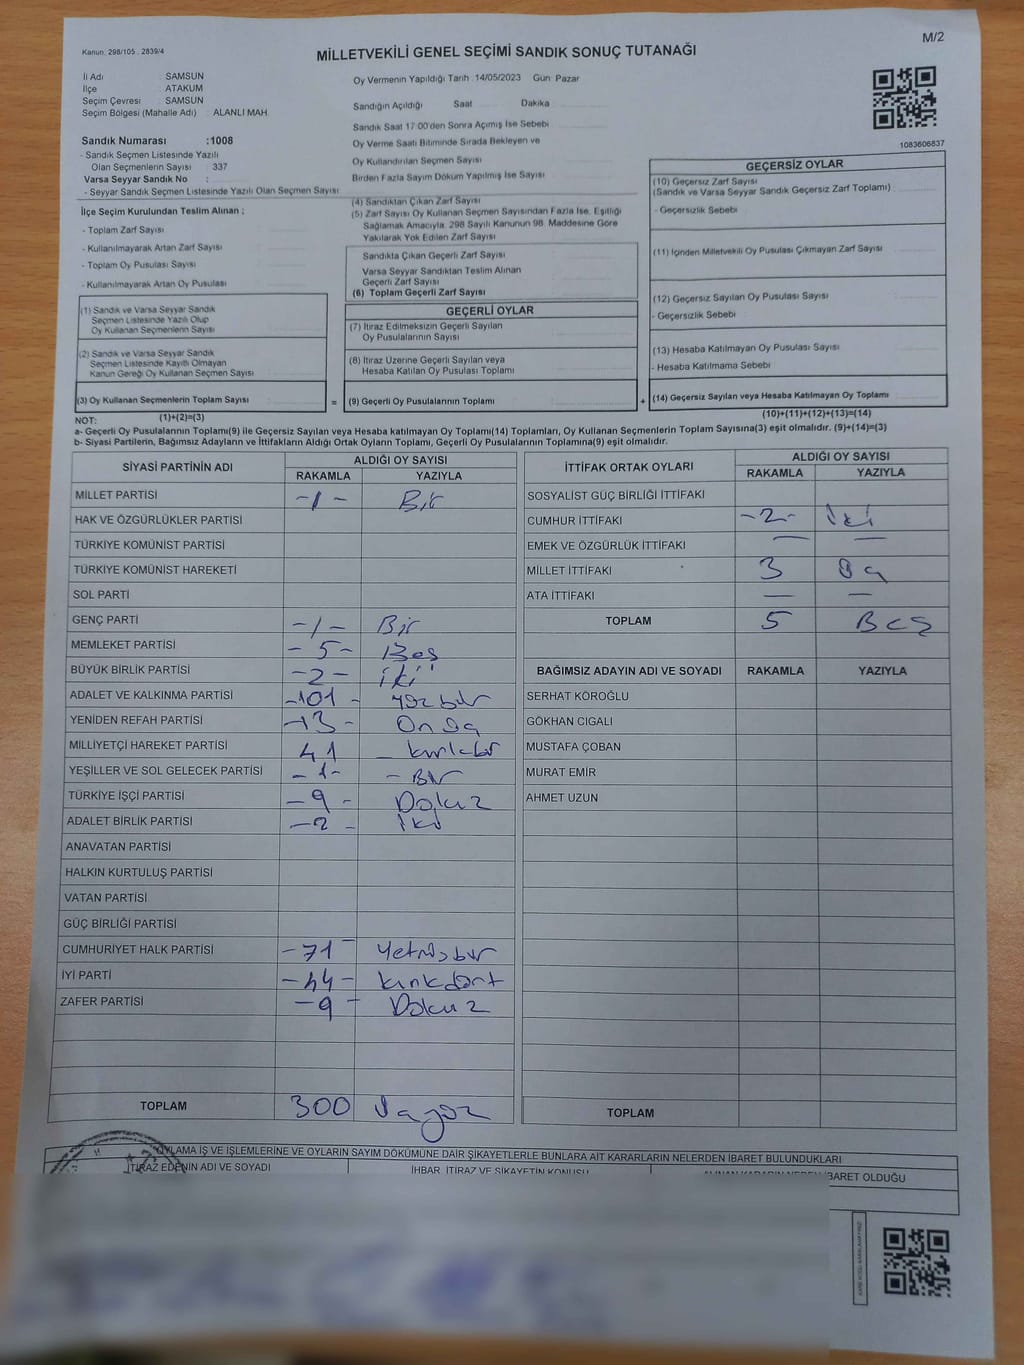 M/2
Kanun: 298/105 , 2839/4
MİLLETVEKİLİ GENEL SEÇİMİ SANDIK SONUÇ TUTANAĞI
İl Adı : SAMSUN
İlçe : ATAKUM
Seçim Çevresi : SAMSUN
Seçim Bölgesi (Mahalle Adı) : ALANLI MAH.
Sandık Numarası :1008
- Sandık Seçmen Listesinde Yazılı
Olan Seçmenlerin Sayısı : 337
Varsa Seyyar Sandık No :
- Seyyar Sandık Seçmen Listesinde Yazılı Olan Seçmen Sayısı
Oy Vermenin Yapıldığı Tarih :14/05/2023 Gün: Pazar
Sandığın Açıldığı Saat Dakika
Sandık Saat 17:00'den Sonra Açımış İse Sebebi
Oy Verme Saati Bitiminde Sırada Bekleyen ve
Oy Kullandırılan Seçmen Sayısı
Birden Fazla Sayım Döküm Yapılmış İse Sayısı
1083606837
İlçe Seçim Kurulundan Teslim Alınan ;
- Toplam Zarf Sayısı
- Kullanılmayarak Artan Zarf Sayısı
- Toplam Oy Pusulası Sayısı
- Kullanılmayarak Artan Oy Pusulası
(1) Sandık ve Varsa Seyyar Sandık
Seçmen Listesinde Yazılı Olup
Oy Kullanan Seçmenlerin Sayısı
(2) Sandık ve Varsa Seyyar Sandık
Seçmen Listesinde Kayıtlı Olmayan
Kanun Gereği Oy Kullanan Seçmen Sayısı
(3) Oy Kullanan Seçmenlerin Toplam Sayısı =
(4) Sandıktan Çıkan Zarf Sayısı
(5) Zarf Sayısı Oy Kullanan Seçmen Sayısından Fazla İse, Eşitliği
Sağlamak Amacıyla, 298 Sayılı Kanunun 98. Maddesine Göre
Yakılarak Yok Edilen Zarf Sayısı
Sandıkta Çıkan Geçerli Zarf Sayısı
Varsa Seyyar Sandıktan Teslim Alınan
Geçerli Zarf Sayısı
(6) Toplam Geçerli Zarf Sayısı
GEÇERLİ OYLAR
(7) İtiraz Edilmeksizin Geçerli Sayılan
Oy Pusulalarının Sayısı
(8) İtiraz Üzerine Geçerli Sayılan veya
Hesaba Katılan Oy Pusulası Toplamı
(9) Geçerli Oy Pusulalarının Toplamı +
GEÇERSİZ OYLAR
(10) Geçersiz Zarf Sayısı
(Sandık ve Varsa Seyyar Sandık Geçersiz Zarf Toplamı)
- Geçersizlik Sebebi
(11) İçinden Milletvekili Oy Pusulası Çıkmayan Zarf Sayısı
(12) Geçersiz Sayılan Oy Pusulası Sayısı
- Geçersizlik Sebebi
(13) Hesaba Katılmayan Oy Pusulası Sayısı
- Hesaba Katılmama Sebebi
(14) Geçersiz Sayılan veya Hesaba Katılmayan Oy Toplamı
NOT: (1)+(2)=(3) (10)+(11)+(12)+(13)=(14)
a- Geçerli Oy Pusulalarının Toplamı(9) ile Geçersiz Sayılan veya Hesaba Katılmayan Oy Toplamı(14) Toplamları, Oy Kullanan Seçmenlerin Toplam Sayısına(3) eşit olmalıdır. (9)+(14)=(3)
b- Siyasi Partilerin, Bağımsız Adayların ve İttifakların Aldığı Ortak Oyların Toplamı, Geçerli Oy Pusulalarının Toplamına(9) eşit olmalıdır.
SİYASİ PARTİNİN ADI ALDIĞI OY SAYISI
RAKAMLA YAZIYLA
MİLLET PARTİSİ -1- Bir
HAK VE ÖZGÜRLÜKLER PARTİSİ
TÜRKİYE KOMÜNİST PARTİSİ
TÜRKİYE KOMÜNİST HAREKETİ
SOL PARTİ
GENÇ PARTİ -1- Bir
MEMLEKET PARTİSİ -5- Beş
BÜYÜK BİRLİK PARTİSİ -2- iki
ADALET VE KALKINMA PARTİSİ -101- yüz bir
YENİDEN REFAH PARTİSİ -13- On üç
MİLLİYETÇİ HAREKET PARTİSİ 41 - kırkbir
YEŞİLLER VE SOL GELECEK PARTİSİ -1- - Bir
TÜRKİYE İŞÇİ PARTİSİ -9- Dokuz
ADALET BİRLİK PARTİSİ -2- iki
ANAVATAN PARTİSİ
HALKIN KURTULUŞ PARTİSİ
VATAN PARTİSİ
GÜÇ BİRLİĞİ PARTİSİ
CUMHURİYET HALK PARTİSİ -71- Yetmişbir
İYİ PARTİ -44- kırkdört
ZAFER PARTİSİ -9- Dokuz
TOPLAM 300 Üçyüz
İTTİFAK ORTAK OYLARI ALDIĞI OY SAYISI
RAKAMLA YAZIYLA
SOSYALİST GÜÇ BİRLİĞİ İTTİFAKI
CUMHUR İTTİFAKI -2- İki
EMEK VE ÖZGÜRLÜK İTTİFAKI — —
MİLLET İTTİFAKI 3 Üç
ATA İTTİFAKI — —
TOPLAM 5 Beş
BAĞIMSIZ ADAYIN ADI VE SOYADI RAKAMLA YAZIYLA
SERHAT KÖROĞLU
GÖKHAN CIGALI
MUSTAFA ÇOBAN
MURAT EMİR
AHMET UZUN
TOPLAM
OYLAMA İŞ VE İŞLEMLERİNE VE OYLARIN SAYIM DÖKÜMÜNE DAİR ŞİKAYETLERLE BUNLARA AİT KARARLARIN NELERDEN İBARET BULUNDUKLARI
İTİRAZ EDENİN ADI VE SOYADI İHBAR, İTİRAZ VE ŞİKAYETİN KONUSU ALINAN KARARIN NEDEN İBARET OLDUĞU